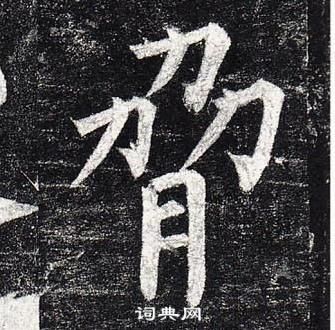 脅
词典网